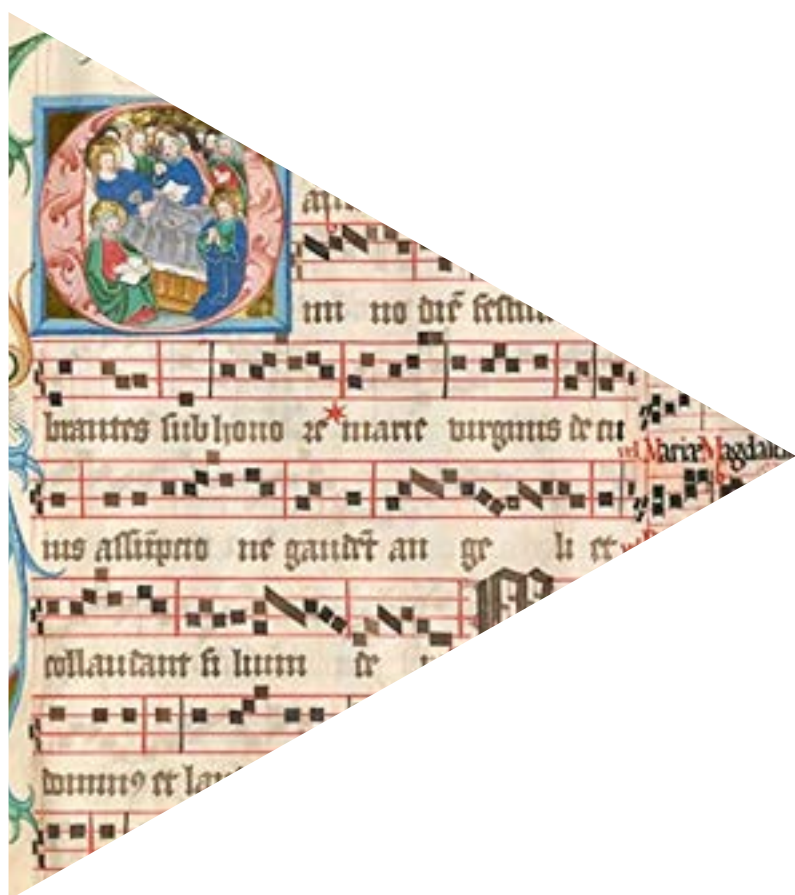 im no diē festum
brantes sub hono re marie virginis de cu
vel Mariæ Magdale
ius assūpcio ne gaudēt an ge li et
collaudant fi lium de
dominꝰ et lau